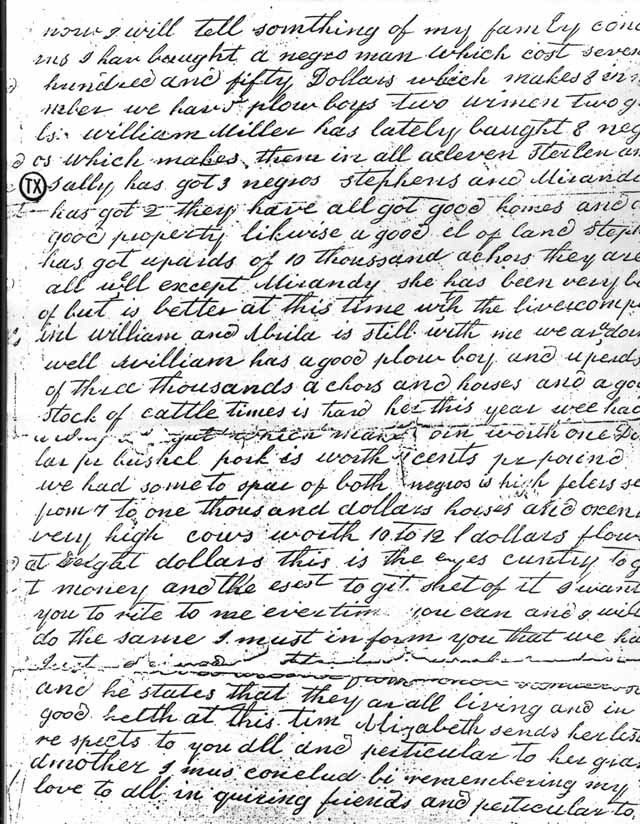 now I will tell somthing of my family conc
ns I hav baught a negro man which cost seven
hundred and fifty Dollars which makes 8 in
mber we hav plow boys two wimen two g
ls. William Miller has lately baught 8 neg
os which makes them in all aeleven Sterlen an
TX
Sally has got 3 negros Stephens and Miranda
has got 2 they have all got good homes and
good property likewise a good el of land Steph
has got upards of 10 thoussand achors they are
all well except Mirandy she has been very b
of but is better at this time wth the livercomp
int William and is still with me we ar doi
well William has a good plow boy and upards
of three thousands achors and horses and a goo
stock of cattle times is hard her this year wee had
worth one Do
lar pr bushel pork is worth cents pr pound
we had some to spar of both negros is high felers se
from 7 to one thousand dollars horses and oxens
very high cows worth 10 to 12 dollars flow
at eight dollars this is the eyes cuntry to g
t money and the esest to git shet of it I want
you to rite to me ever tim you can and I will
do the same I must in form you that we ha
and he states that they ar all living and in
good helth at this tim Elizabeth sends her
re spects to you all and perticular to her gran
dmother I mus conclud bi remembering my
love to all in quiring friends and perticular to